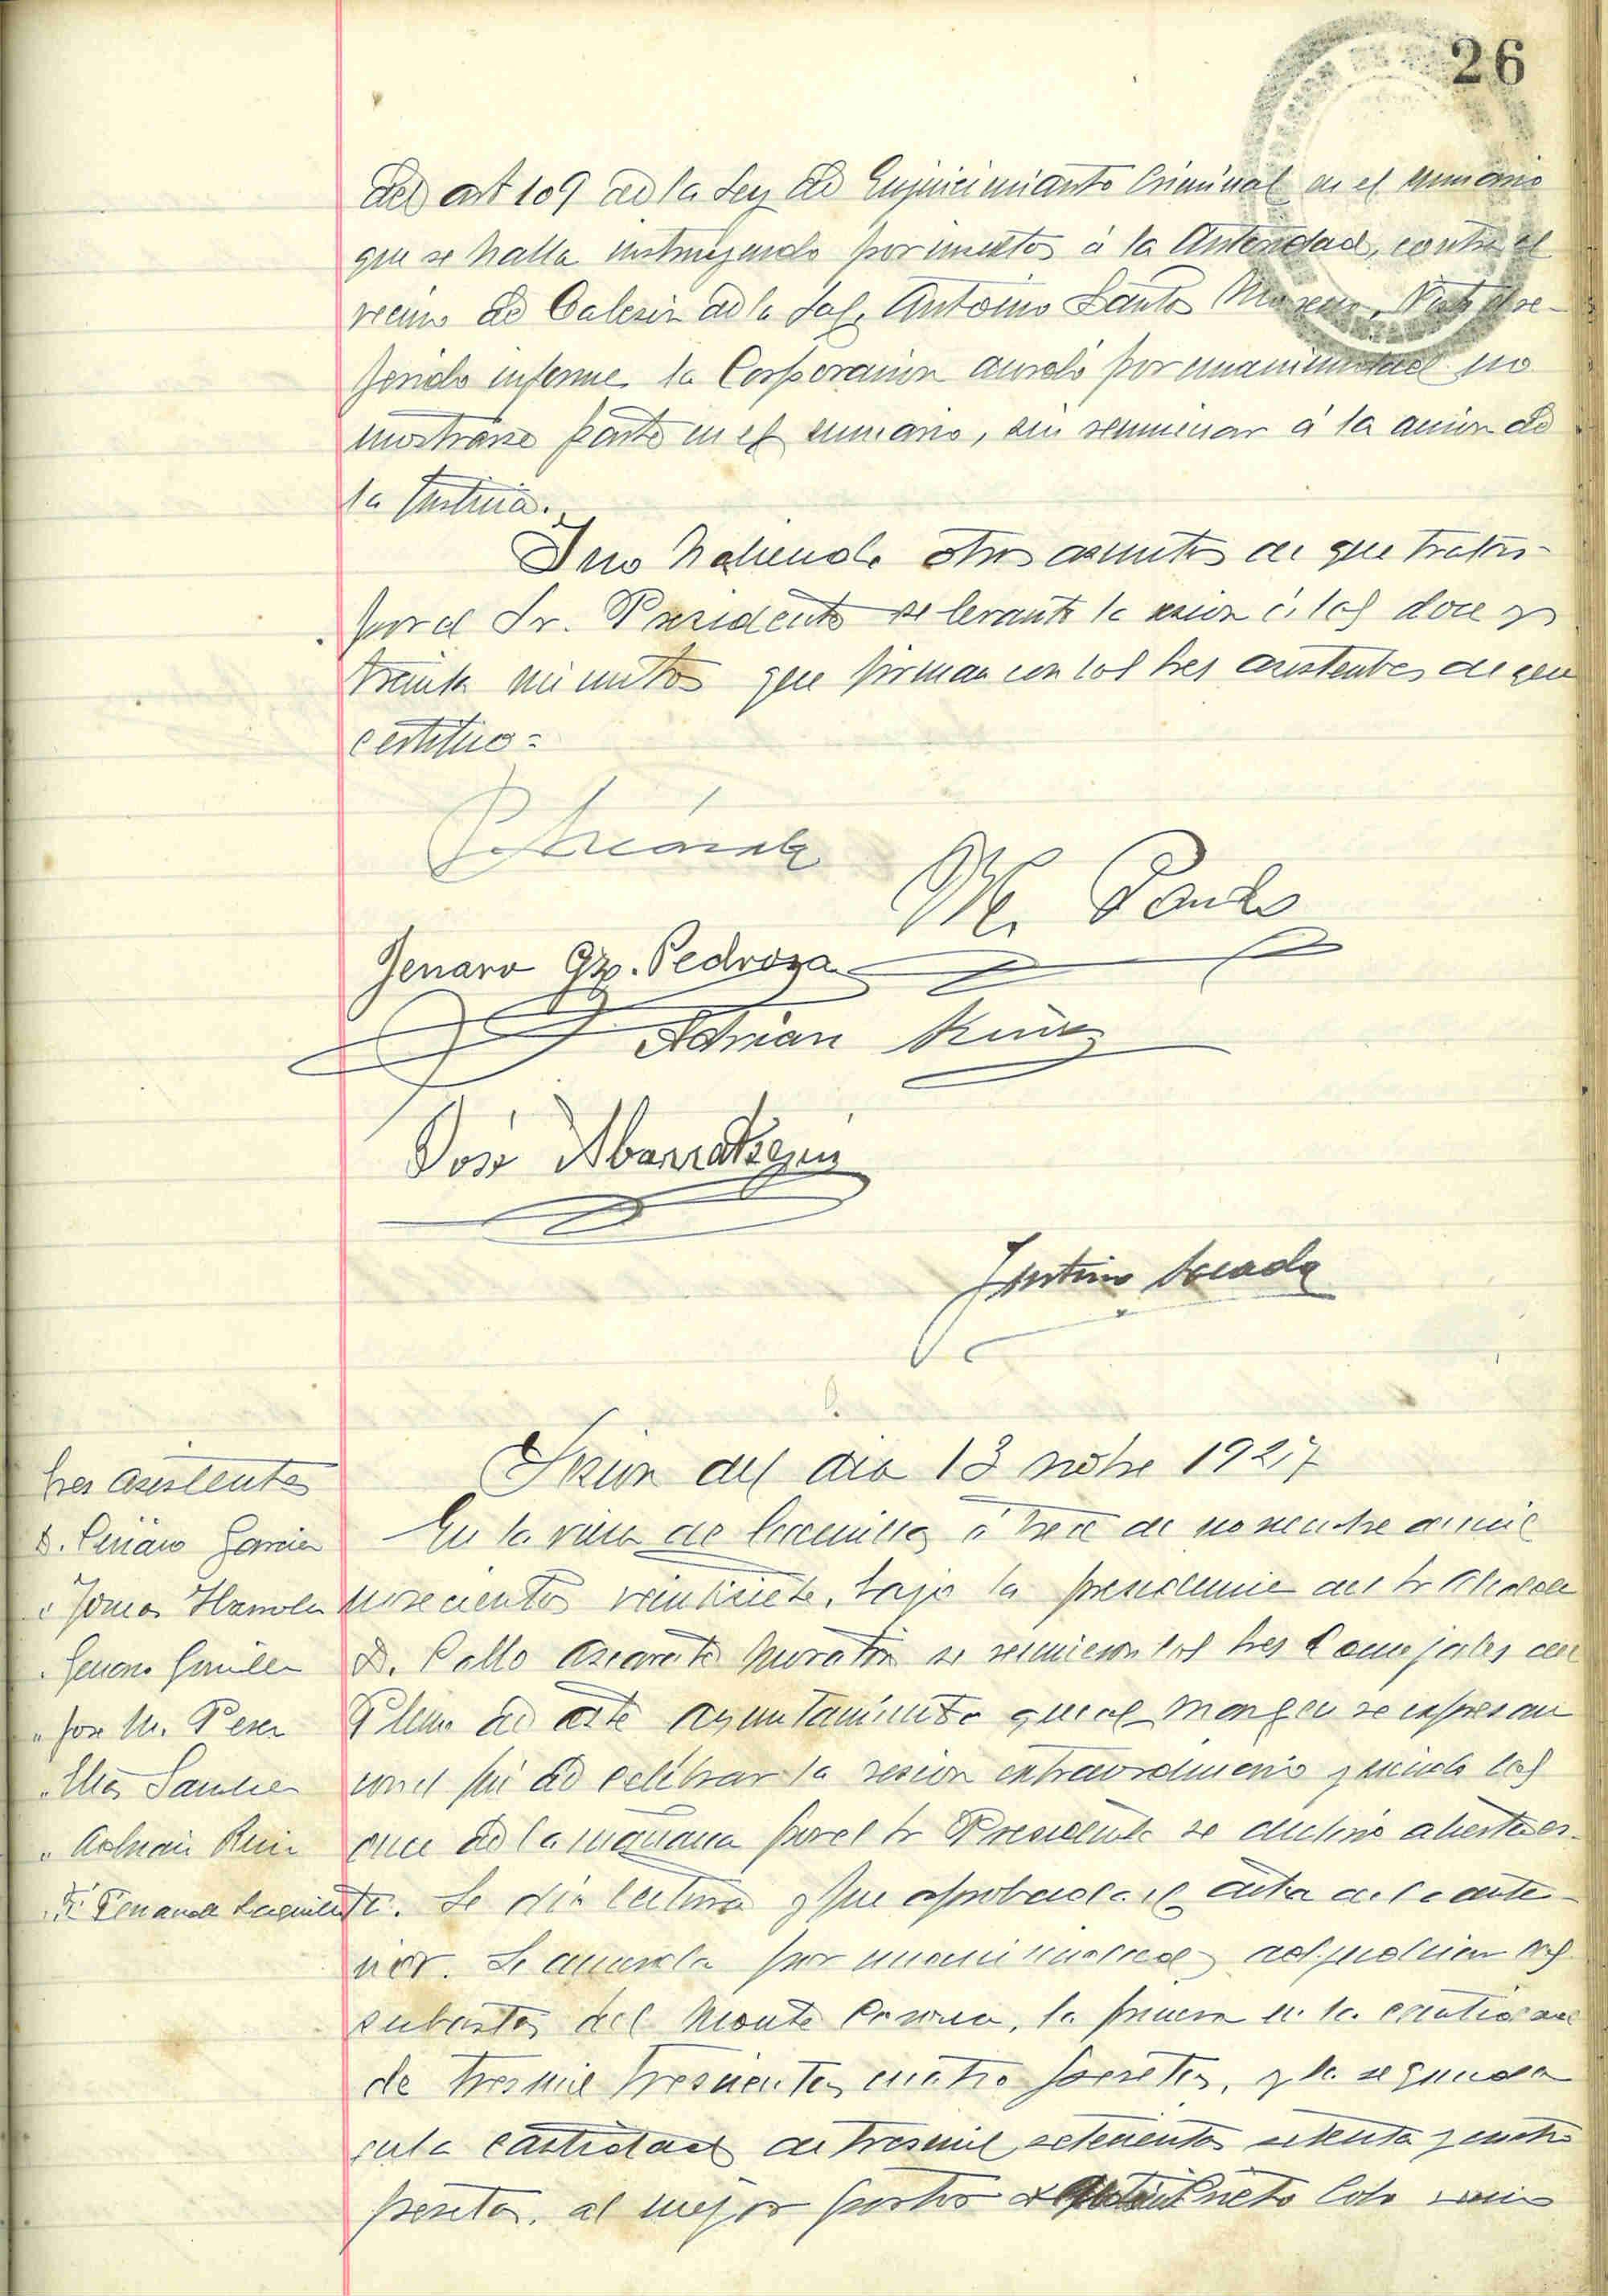 26
del art 109 de la Ley de Enjuiciamiento Criminal en el sumario
que se halla instruyendo por insultos á la Autoridad, contra el
vecino de de la Antonio Santos Moreno, Visto el re-
ferido informe la Corporación acordó por unanimidad no
mostrarse parte en el sumario, sin renunciar á la acción de
la Justicia.
Y no habiendo otros asuntos de que tratar
por el Sr. Presidente se levantó la sesion á las doce y
treinta minutos que firman con los Sres asistentes de que
certifico=
M. Pardo
Jenaro Gz. Pedroza
Adrian Ruiz
José
Justino
Sesion del dia 13 nobre 1927
Sres asistentes
D. Garcia
" Tomas
" Jose M. Perez
" Elias Sanchez
" Adrian Ruiz
En la villa de á trece de noviembre de mil
novecientos veintisiete, bajo la presidencia del Sr Alcalde
D. Pablo Azcarate se reunieron los Sres Concejales del
Pleno de este Ayuntamiento que al margen se expresan
con el fin de celebrar la sesion extraordinaria y siendo las
once de la mañana por el Sr Presidente se declaró abierta es-
ta. Se dió lectura y fue aprobada el acta de la ante-
rior. Se acuerda por unanimidad adjudicar las
subastas del Monte la primera en la cantidad
de tres mil trescientas cuatro pesetas, y la segunda
en la cantidad de tres mil setecientas setenta y cuatro
pesetas, al mejor postor Prieto vecino